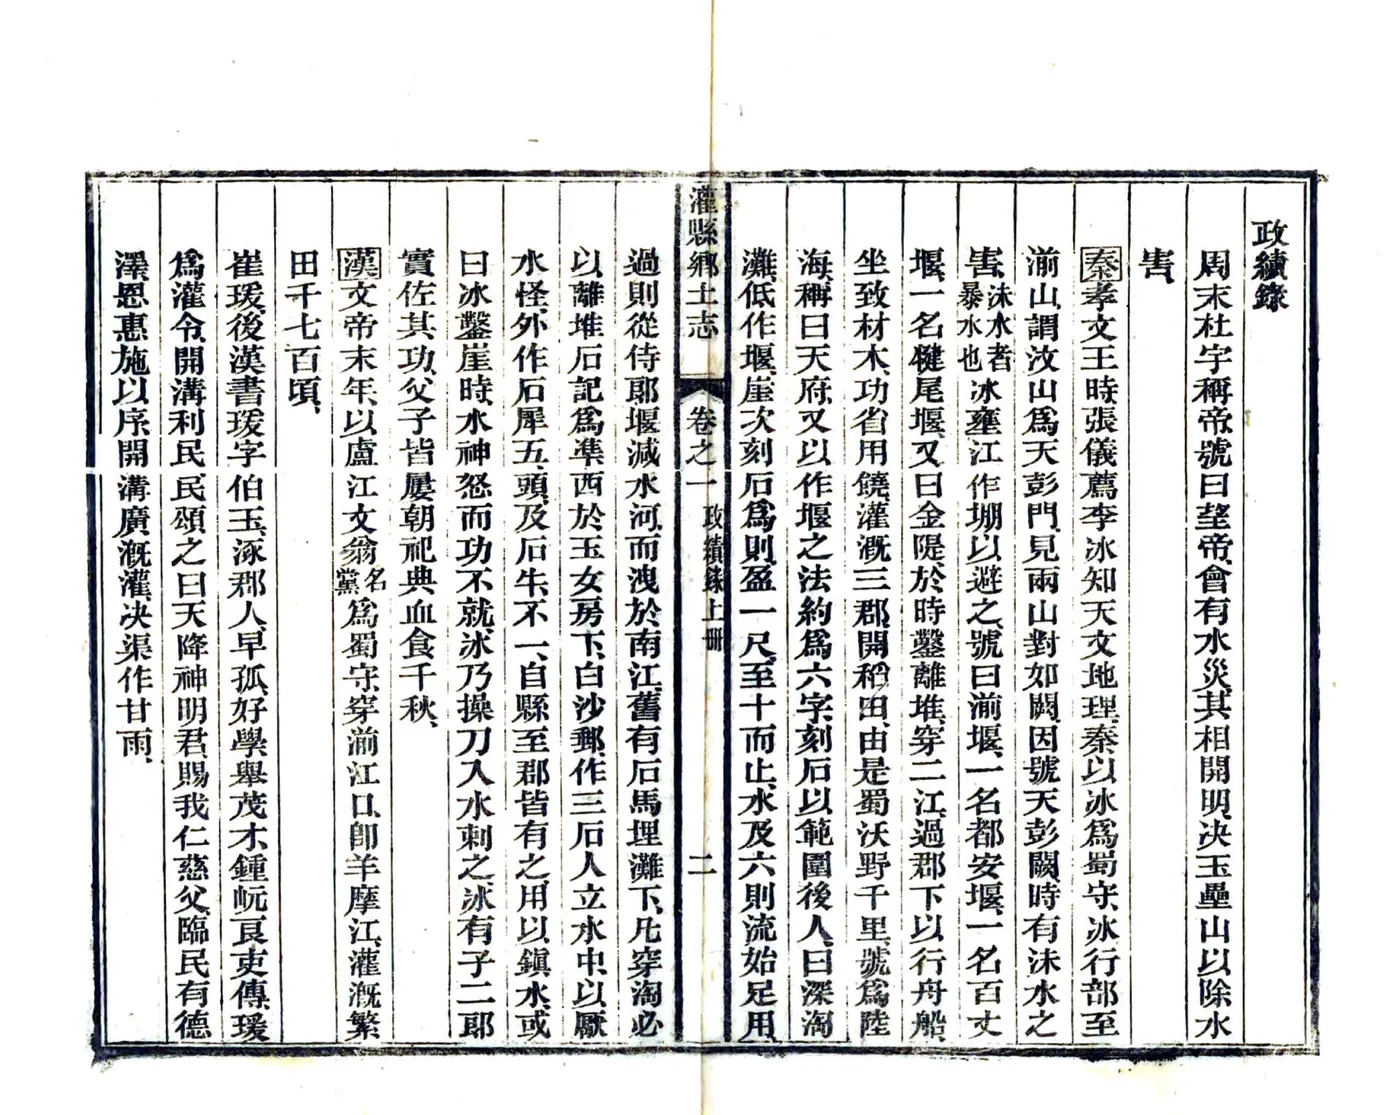 政績錄
周末杜宇稱帝、號曰望帝、會有水災、其相開明、決玉壘山以除水
害、
秦孝文王時、張儀薦李冰知天文地理、秦以冰爲蜀守、冰行部至
湔山、謂汶山爲天彭門、見兩山對如闕、因號天彭闕、時有沬水之
害、沬水者暴水也冰壅江作堋以避之、號曰湔堰、一名都安堰、一名百丈
堰、一名犍尾堰、又曰金隄、於時鑿離堆、穿二江、過郡下以行舟船、
坐致材木、功省用饒、灌漑三郡、開稻田、由是蜀沃野千里、號爲陸
海、稱曰天府、又以作堰之法約爲六字、刻石以範圍後人、曰深淘
灘、低作堰、崖次刻石爲則、盈一尺、至十而止、水及六則流始足用、
灌縣鄉土志 卷之一 政績錄上册 二
過則從侍郎堰減水河、而洩於南江、舊有石馬埋灘下、凡穿淘必
以離堆石記爲準、西於玉女房下、白沙郵、作三石人立水中、以厭
水怪、外作石犀五頭、及石牛、不一、自縣至郡皆有之、用以鎭水、或
曰冰鑿崖時、水神怒而功不就、冰乃操刀入水刺之、冰有子二郎
實佐其功、父子皆屢朝祀典、血食千秋、
漢文帝末年、以盧江文翁名黨爲蜀守、穿湔江口、卽羊摩江、灌漑繁
田千七百頃、
崔瑗、後漢書瑗字伯玉、涿郡人、早孤、好學舉茂才、鍾岏良吏傳、瑗
爲灌令、開溝利民、民頌之曰天降神明君、賜我仁慈父、臨民有德
澤、恩惠施以序、開溝廣漑灌、決渠作甘雨、